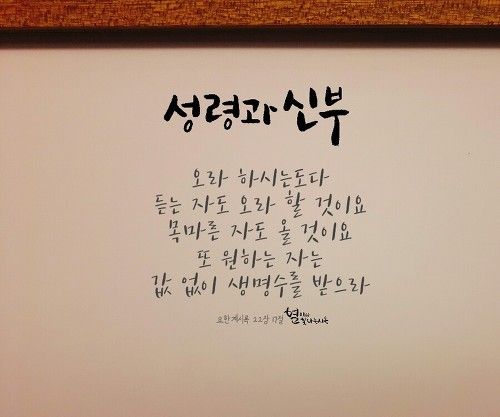 성령과 신부
오라 하시는도다
듣는 자도 오라 할 것이요
목마른 자도 올 것이요
또 원하는 자는
값 없이 생명수를 받으라
요한계시록 22장 17절